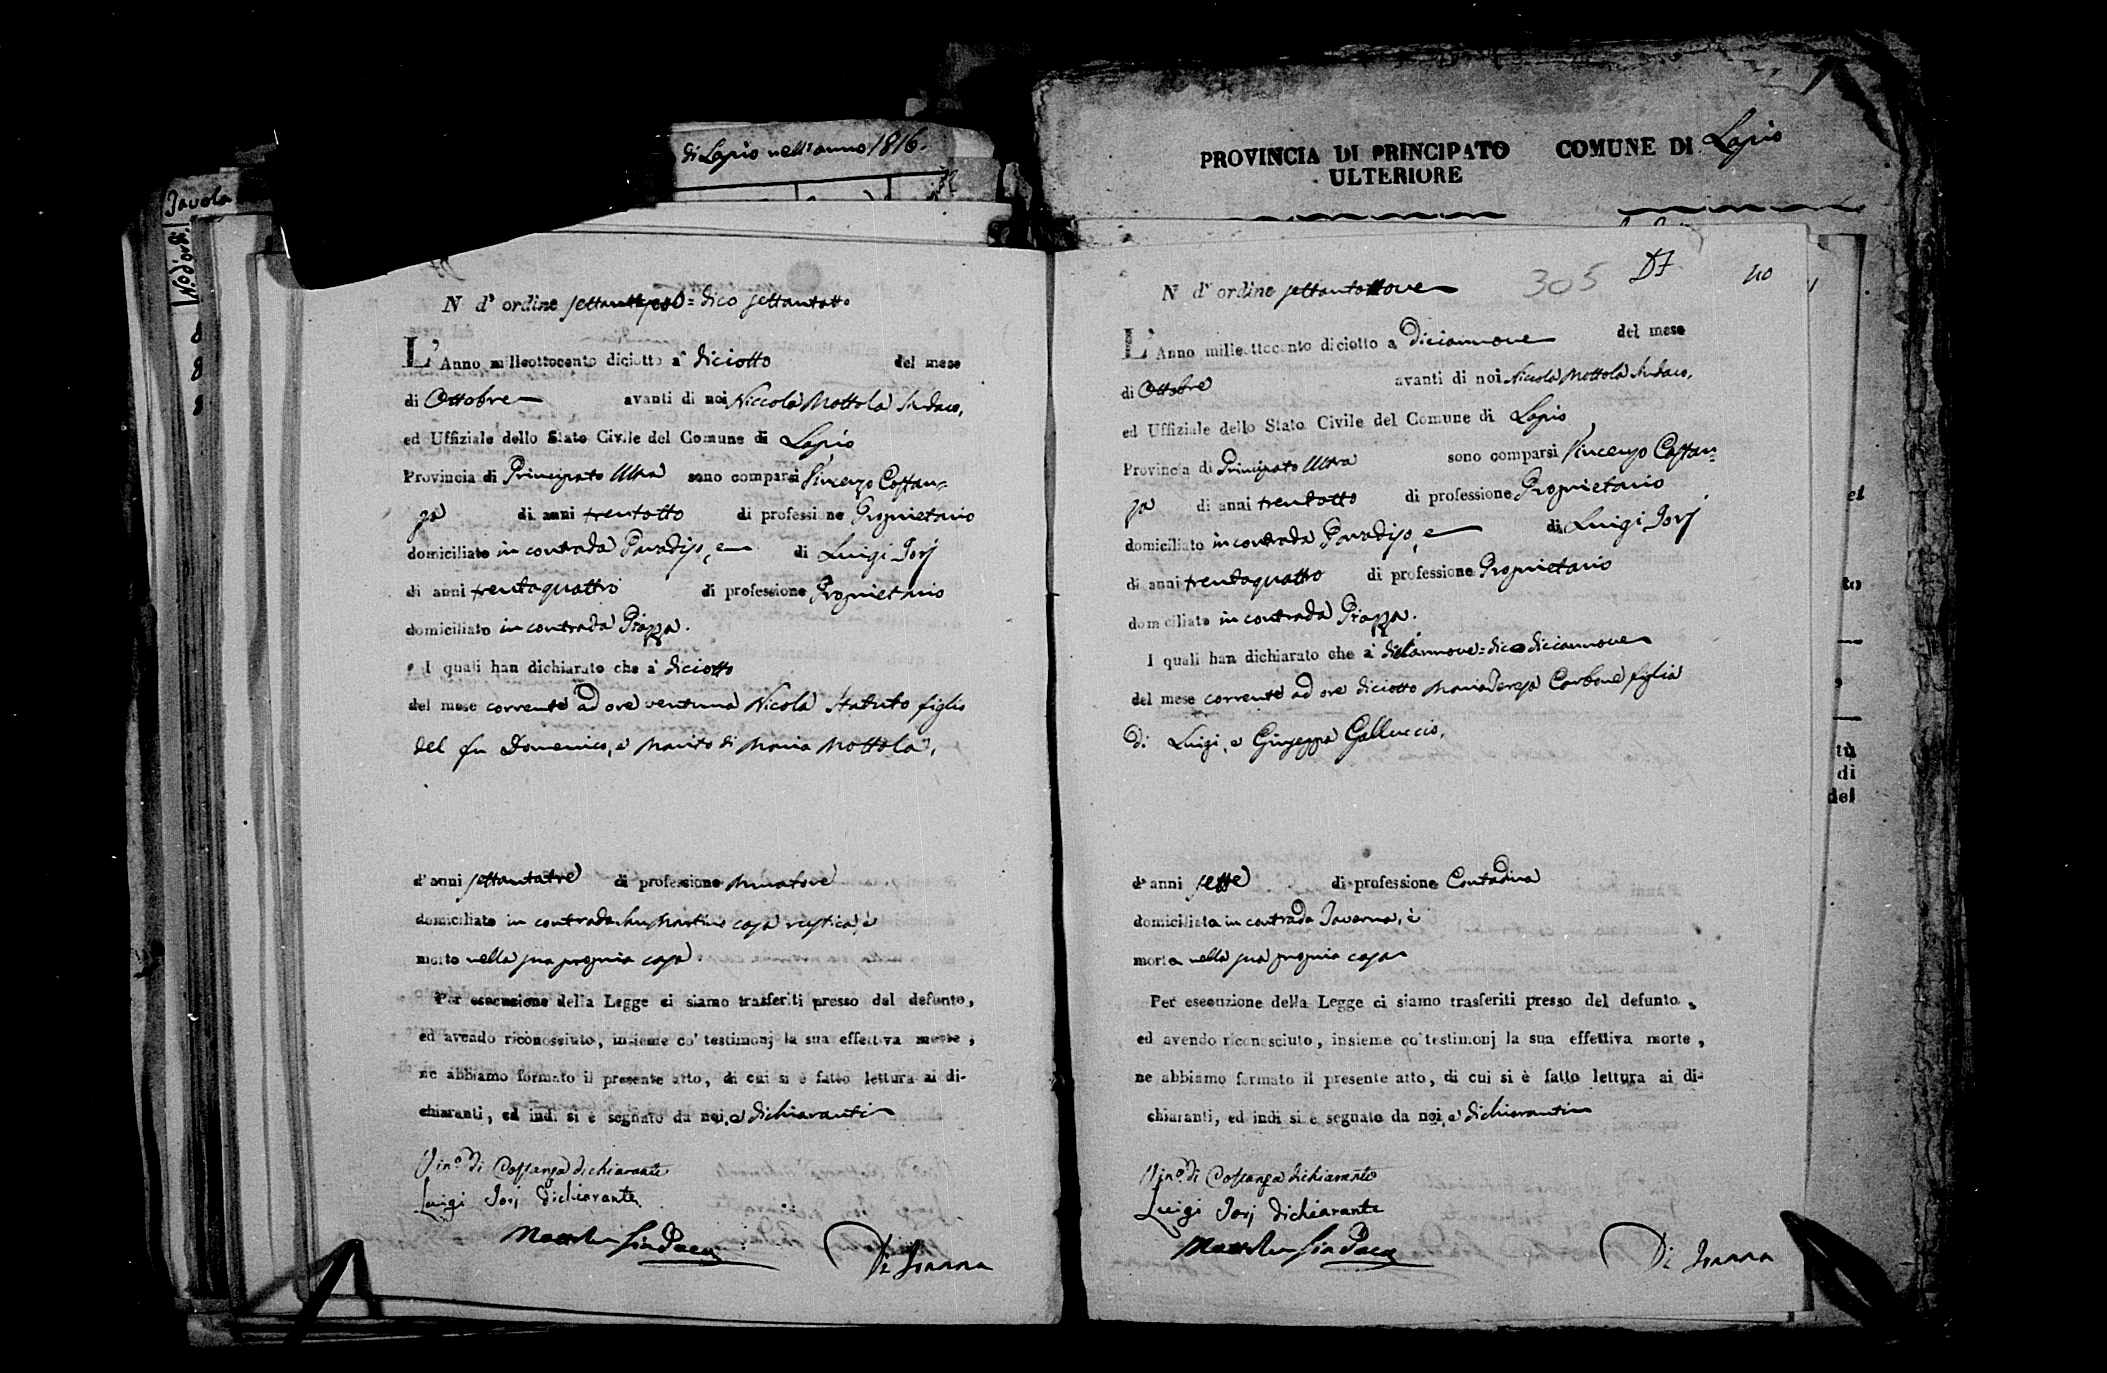 di Lapio nell'anno 1816.
Tavola
N.o d'ordi.
PROVINCIA DI PRINCIPATO ULTERIORE
COMUNE DI Lapio
N d'ordine = dico settantotto
L'Anno milleottocento diciotto a' diciotto del mese
di Ottobre avanti di noi Niccola Mottola Sindaco,
ed Uffiziale dello Stato Civile del Comune di Lapio
Provincia di Principato Ultra sono comparsi Vincenzo Costan=
za di anni trentotto di professione Proprietario
domiciliato in contrada Paradiso, e di Luigi Iorj
di anni trentaquattro di professione Proprietario
domiciliato in contrada Piazza.
I quali han dichiarato che a' diciotto
del mese corrente ad ore ventuna Nicola Statuto figlio
del fu Domenico, e marito di Maria Mottola,
d'anni settantatre di professione Muratore
domiciliato in contrada San Martino casa rustica, è
morto nella sua propria casa
Per esecuzione della Legge ci siamo trasferiti presso del defunto,
ed avendo riconosciuto, insieme co' testimonj la sua effettiva morte,
ne abbiamo formato il presente atto, di cui si è fatto lettura ai di-
chiaranti, ed indi si è segnato da noi, e dichiaranti
Vin.o di Costanza dichiarante
Luigi Iorj dichiarante
Mottola Sindaco
Di Ioanna
305
40
N d'ordine settantanove
L'Anno milleottocento diciotto a diciannove del mese
di Ottobre avanti di noi Niccola Mottola Sindaco,
ed Uffiziale dello Stato Civile del Comune di Lapio
Provincia di Principato Ultra sono comparsi Vincenzo Costan=
za di anni trentotto di professione Proprietario
domiciliato in contrada Paradiso, e di Luigi Iorj
di anni trentaquattro di professione Proprietario
domiciliato in contrada Piazza.
I quali han dichiarato che a' diciannove = dico diciannove
del mese corrente ad ore diciotto Maria Teresa Carbone figlia
di Luigi, e Giuseppa Galluccio,
d'anni sette di professione Contadina
domiciliata in contrada Taverna, è
morta nella sua propria casa
Per esecuzione della Legge ci siamo trasferiti presso del defunto,
ed avendo riconosciuto, insieme co' testimonj la sua effettiva morte,
ne abbiamo formato il presente atto, di cui si è fatto lettura ai di-
chiaranti, ed indi si è segnato da noi, e dichiaranti
Vin.o di Costanza dichiarante
Luigi Iorj dichiarante
Mottola Sindaco
Di Ioanna
to
tù
di
del